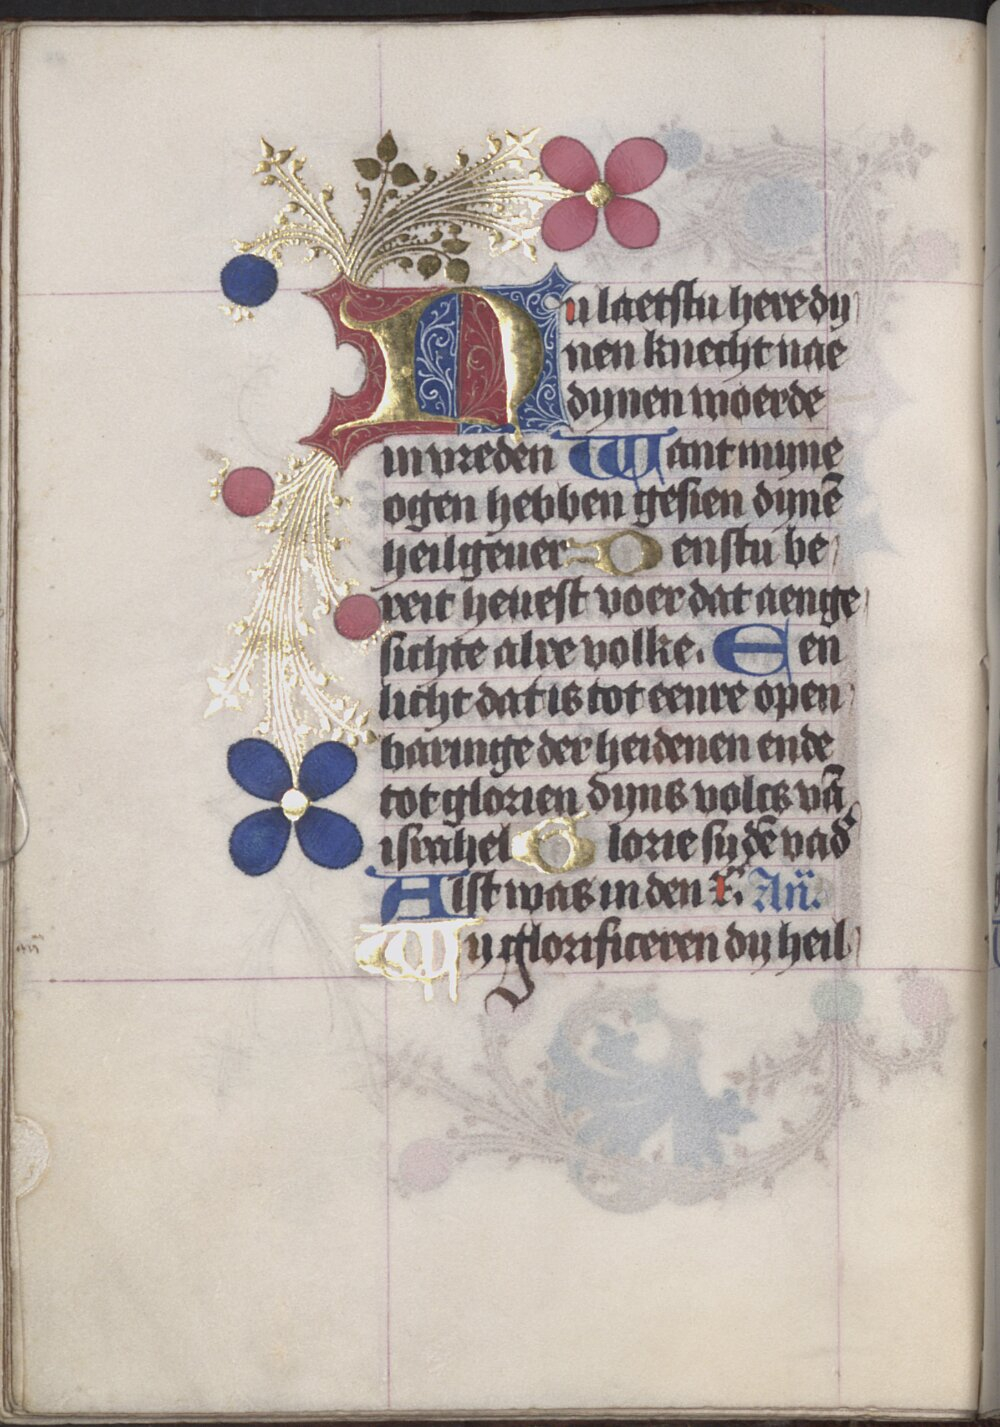 Nu laetstu here dy
nen knecht nae
dynen woerde
in vreden Want myne
ogen hebben gesien dynē
heilgeuer Denstu be
reit heuest voer dat aenge
sichte alre volke. Een
licht dat is tot eenre open
baringe der heidenen ende
tot glorien dyns volcs vā
israhel Glorie sy dē vad
Alst was in den Añ.
Wy glorificeren dy heil